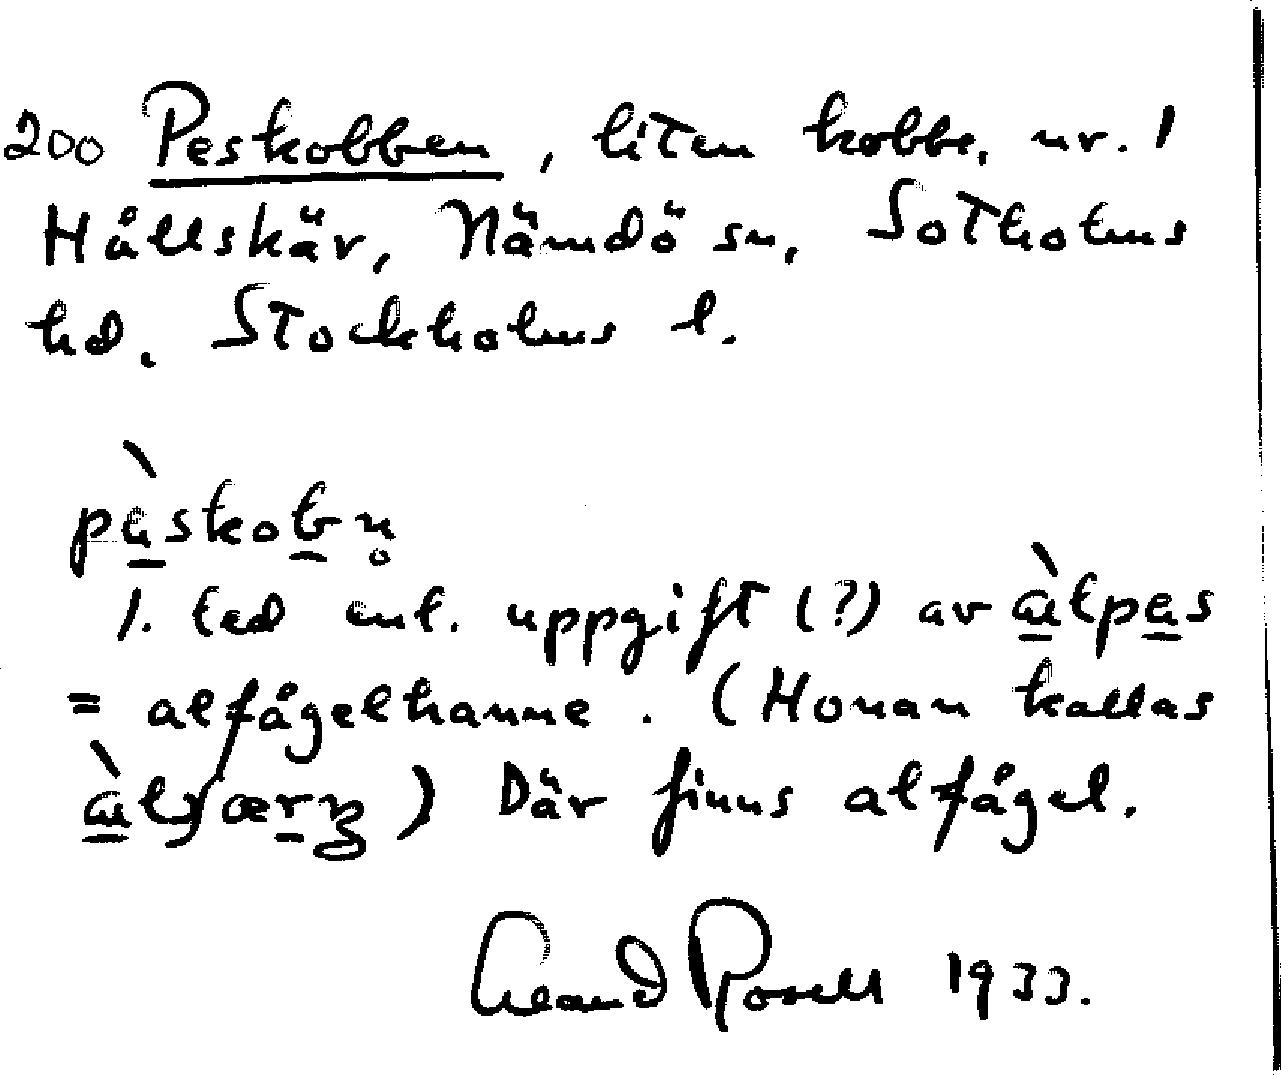 200 Peskobben, liten kobbe, nr. 1
Hållskär, Nämdö sn, Sotholms
hd. Stockholms l.
pàskobn̥
1. led enl. uppgift (?) av àlpas
= alfågelhanne. (Honan kallas
Där finns alfågel.
Rosell 1933.